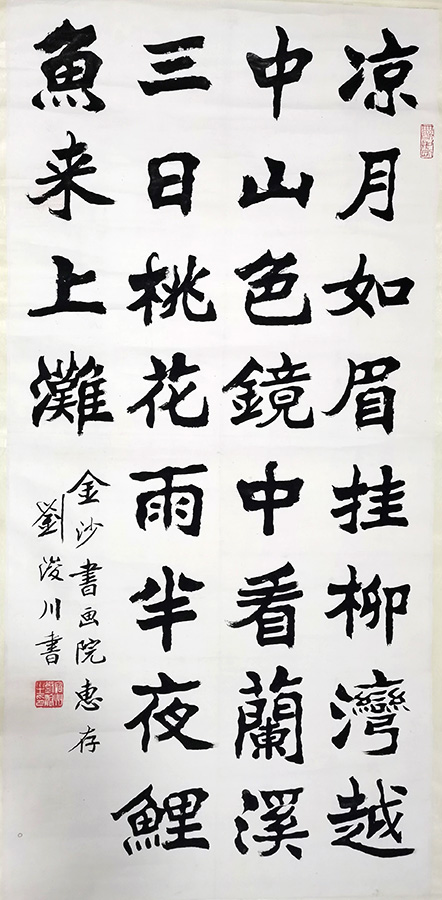 凉月如眉挂柳灣越
中山色鏡中看蘭溪
三日桃花雨半夜鯉
魚来上灘
金沙書画院惠存
劉浚川書